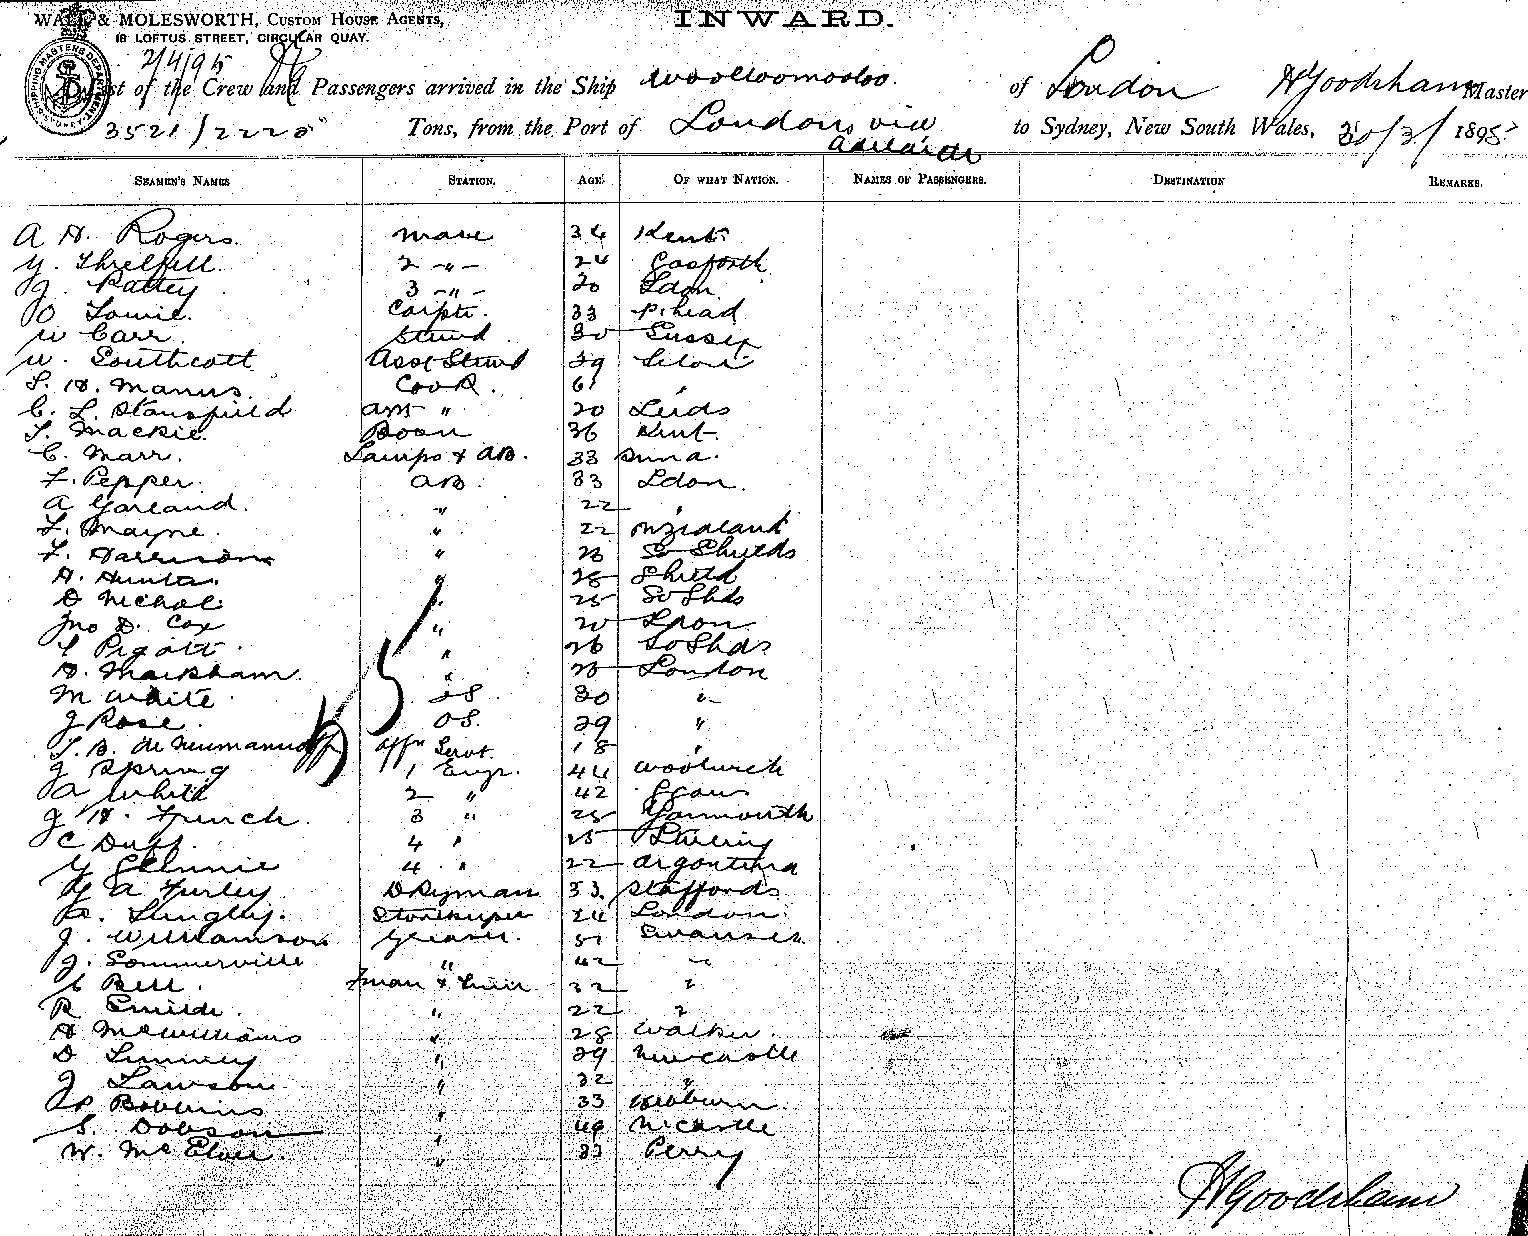 WALL & MOLESWORTH, CUSTOM HOUSE AGENTS,
18 LOFTUS STREET, CIRCULAR QUAY.
INWARD.
2/4/95
List of the Crew and Passengers arrived in the Ship Woolloomooloo of London H Goodrham Master
3521/2228 Tons, from the Port of London via Adelaide to Sydney, New South Wales, 30/3/1895
SEAMEN'S NAMES STATION. AGE OF WHAT NATION. NAMES OF PASSENGERS. DESTINATION REMARKS.
A H. Rogers Mate 34 Kent
Y. Threlfell 2 -"- 24 Gosforth
J. Pattey 3 -"- 20 Ldon
O Lowie Carptr. 33 P. head
W Carr Stewd 30 Sussex
W. Southcott Asst Stewd 29
S. H. Manus Cook 61 "
C. L. Stansfield " 20 Leeds
T. Mackie Bosn 36 Kent
C. Marr. Lamps & AB. 33
F. Pepper AB 33 Ldon
A Garland " 22 "
F. Mayne " 22 N Zealand
F. Harrison " 23 So Shields
H. Hunter " 28 Shield
D Nichol " 25 So Shds
Jno D. Cox " 20
Pigott " 26 So Shds
H. Markham " 23 London
M White OS. 20 "
J Rose OS. 29 "
T. B. de Neumann Servt. 18 "
J Spring 1 Engr. 44 Woolwich
A White 2 " 42
J H. French 3 " 25 Yarmouth
C Duff 4 " 25
Y Glennie 4 " 22 Argentina
G A Furley Dkyman 33. Staffords
Lingley Storekeeper 24 London
J. Williamson Greaser 51 Swansea
J. Sommerville " 42 "
C Bell Fman & Trimr 32 "
R " 22 "
H McWilliams " 28 Walker
D " 29 Newcastle
J Lawson " 32 "
P Robbins " 33
S. Dobson " 49 Ncastle
W. McElvie " 33
H Goodrham